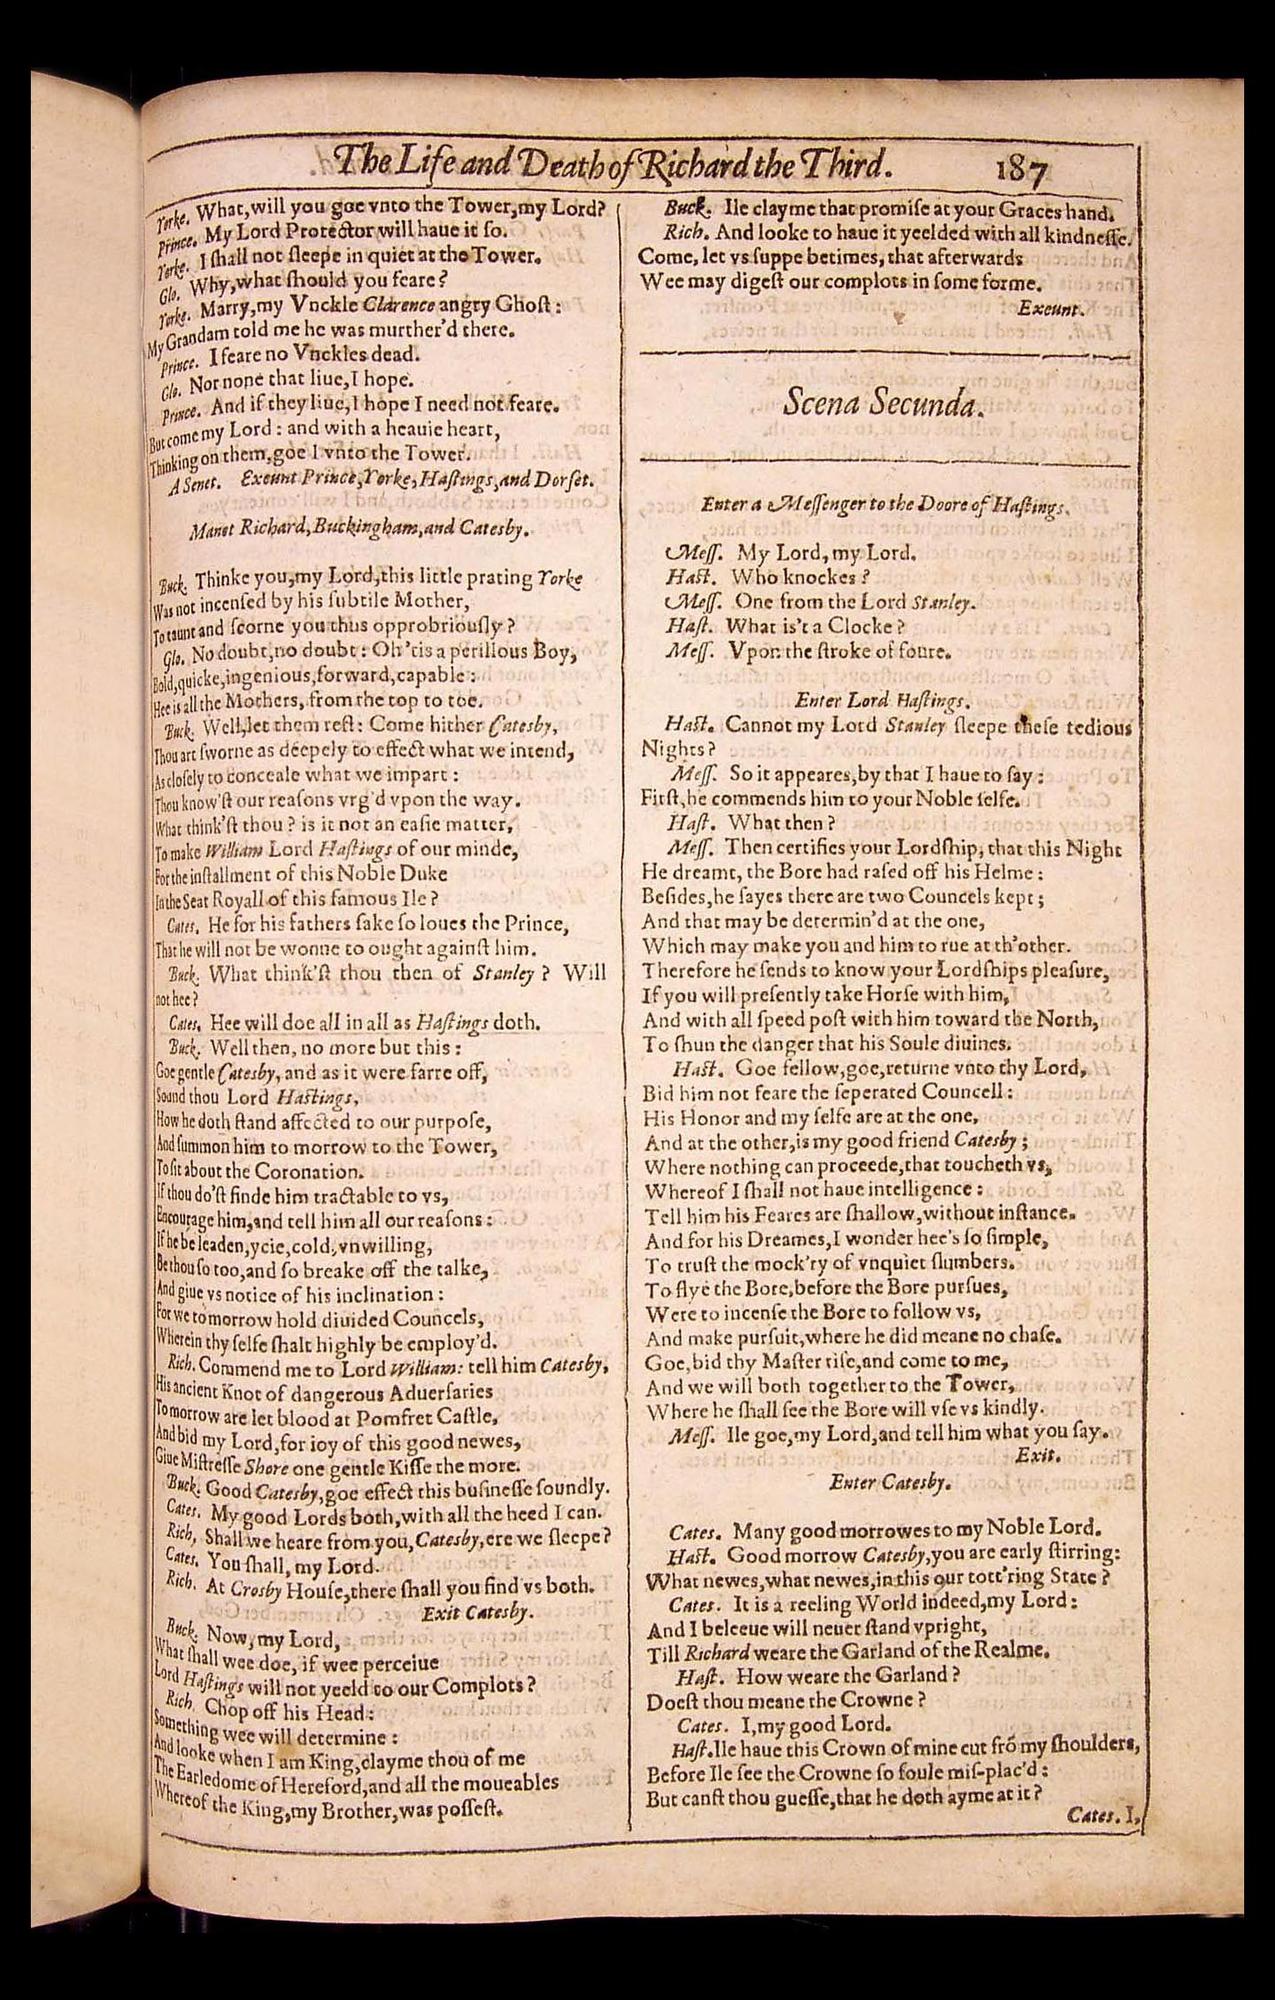 The Life and Death of Richard the Third. 187
Yorke. What,will you goe vnto the Tower,my Lord?
Prince. My Lord Protector will haue it so.
Yorke. I shall not sleepe in quiet at the Tower.
Glo. Why,what should you feare?
Yorke. Marry,my Vnckle Clarence angry Ghost:
My Grandam told me he was murther'd there.
Prince. I feare no Vnckles dead.
Glo. Nor none that liue,I hope.
Prince. And if they liue,I hope I need not feare.
But come my Lord: and with a heauie heart,
Thinking on them,goe I vnto the Tower.
A Senet. Exeunt Prince,Yorke,Hastings,and Dorset.
Manet Richard,Buckingham,and Catesby.
Buck. Thinke you,my Lord,this little prating Yorke
Was not incensed by his subtile Mother,
To taunt and scorne you thus opprobriously?
Glo. No doubt,no doubt: Oh 'tis a perillous Boy,
Bold,quicke,ingenious,forward,capable:
Hee is all the Mothers, from the top to toe.
Buck. Well,let them rest: Come hither Catesby,
Thou art sworne as deepely to effect what we intend,
As closely to conceale what we impart:
Thou know'st our reasons vrg'd vpon the way.
What think'st thou? is it not an easie matter,
To make William Lord Hastings of our minde,
For the installment of this Noble Duke
In the Seat Royall of this famous Ile?
Cates. He for his fathers sake so loues the Prince,
That he will not be wonne to ought against him.
Buck. What think'st thou then of Stanley? Will
not hee?
Cates. Hee will doe all in all as Hastings doth.
Buck. Well then, no more but this:
Goe gentle Catesby, and as it were farre off,
Sound thou Lord Hastings,
How he doth stand affected to our purpose,
And summon him to morrow to the Tower,
To sit about the Coronation.
If thou do'st finde him tractable to vs,
Encourage him,and tell him all our reasons:
If he be leaden,ycie,cold,vnwilling,
Be thou so too,and so breake off the talke,
And giue vs notice of his inclination:
For we to morrow hold diuided Councels,
Wherein thy selfe shalt highly be employ'd.
Rich. Commend me to Lord William: tell him Catesby,
His ancient Knot of dangerous Aduersaries
To morrow are let blood at Pomfret Castle,
And bid my Lord,for ioy of this good newes,
Giue Mistresse Shore one gentle Kisse the more.
Buck. Good Catesby,goe effect this businesse soundly.
Cates. My good Lords both,with all the heed I can.
Rich. Shall we heare from you,Catesby,ere we sleepe?
Cates. You shall, my Lord.
Rich. At Crosby House,there shall you find vs both.
Exit Catesby.
Buck. Now,my Lord,
What shall wee doe, if wee perceiue
Lord Hastings will not yeeld to our Complots?
Rich. Chop off his Head:
Something wee will determine:
And looke when I am King,clayme thou of me
The Earledome of Hereford,and all the moueables
Whereof the King,my Brother,was possest.
Buck. Ile clayme that promise at your Graces hand.
Rich. And looke to haue it yeelded with all kindnesse.
Come, let vs suppe betimes, that afterwards
Wee may digest our complots in some forme.
Exeunt.
Scena Secunda.
Enter a Messenger to the Doore of Hastings.
Mess. My Lord, my Lord.
Hast. Who knockes?
Mess. One from the Lord Stanley.
Hast. What is't a Clocke?
Mess. Vpon the stroke of foure.
Enter Lord Hastings.
Hast. Cannot my Lord Stanley sleepe these tedious
Nights?
Mess. So it appeares,by that I haue to say:
First,he commends him to your Noble selfe.
Hast. What then?
Mess. Then certifies your Lordship, that this Night
He dreamt, the Bore had rased off his Helme:
Besides,he sayes there are two Councels kept;
And that may be determin'd at the one,
Which may make you and him to rue at th'other.
Therefore he sends to know your Lordships pleasure,
If you will presently take Horse with him,
And with all speed post with him toward the North,
To shun the danger that his Soule diuines.
Hast. Goe fellow,goe,returne vnto thy Lord,
Bid him not feare the seperated Councell:
His Honor and my selfe are at the one,
And at the other,is my good friend Catesby;
Where nothing can proceede,that toucheth vs,
Whereof I shall not haue intelligence:
Tell him his Feares are shallow,without instance.
And for his Dreames,I wonder hee's so simple,
To trust the mock'ry of vnquiet slumbers.
To flye the Bore,before the Bore pursues,
Were to incense the Bore to follow vs,
And make pursuit,where he did meane no chase.
Goe,bid thy Master rise,and come to me,
And we will both together to the Tower,
Where he shall see the Bore will vse vs kindly.
Mess. Ile goe,my Lord,and tell him what you say.
Exit.
Enter Catesby.
Cates. Many good morrowes to my Noble Lord.
Hast. Good morrow Catesby,you are early stirring:
What newes,what newes,in this our tott'ring State?
Cates. It is a reeling World indeed,my Lord:
And I beleeue will neuer stand vpright,
Till Richard weare the Garland of the Realme.
Hast. How weare the Garland?
Doest thou meane the Crowne?
Cates. I,my good Lord.
Hast. Ile haue this Crown of mine cut frõ my shoulders,
Before Ile see the Crowne so foule mis-plac'd:
But canst thou guesse,that he doth ayme at it?
Cates. I,